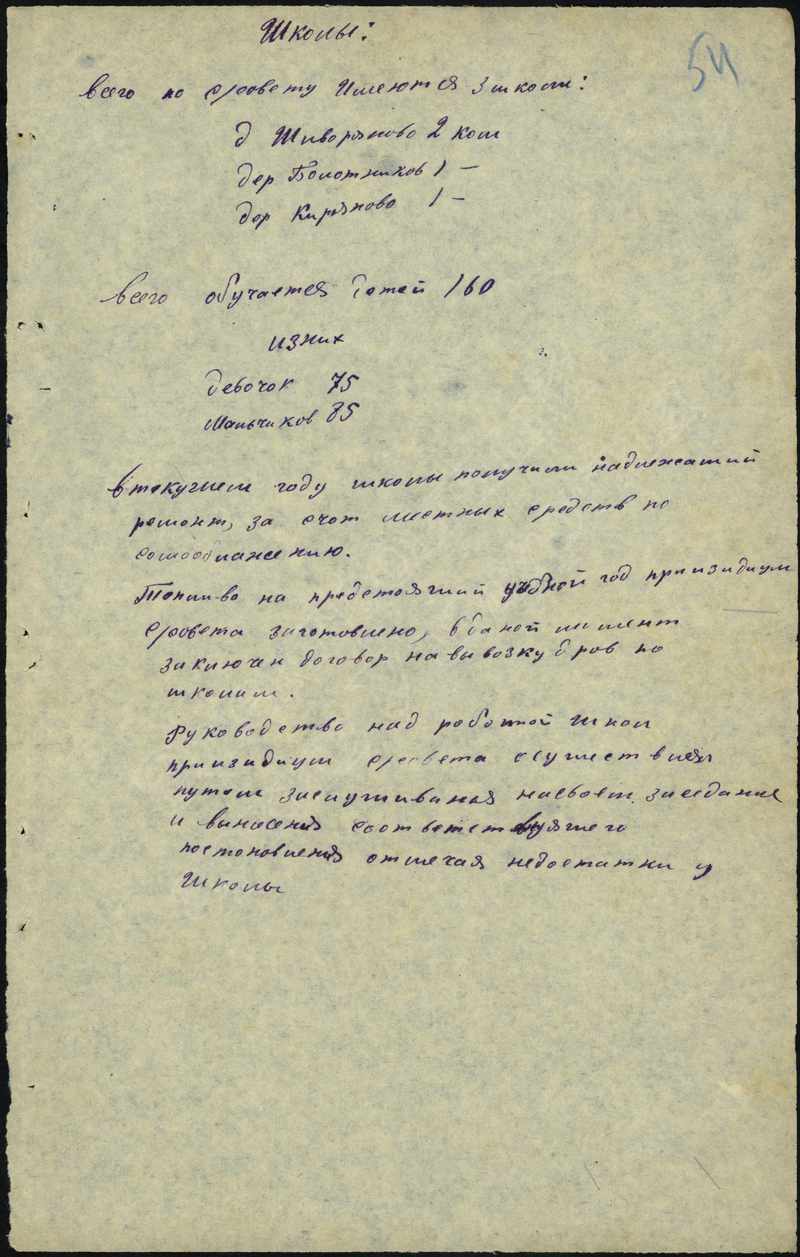 Школы:
54
Всего по с/совету Имеются 3 школы:
д Шиворяково 2 ком
дер Болотников 1 —
дер Киряково 1 —
Всего обучается детей 160
из них
девочок 75
Мальчиков 85
В текущем году школы получили надлежащий
ремонт, за счот местных средств по
самообложению.
Топливо на предстоящий учебной год призидиум
с/совета заготовлено, в даной момент
заключен договор на вывозку дров по
школам.
Руководство над работой школ
призидиум с/совета осуществлял
путем заслушивания на своем заседание
и вынасения соответствующего
постоновления отмечая недостатки у
Школы